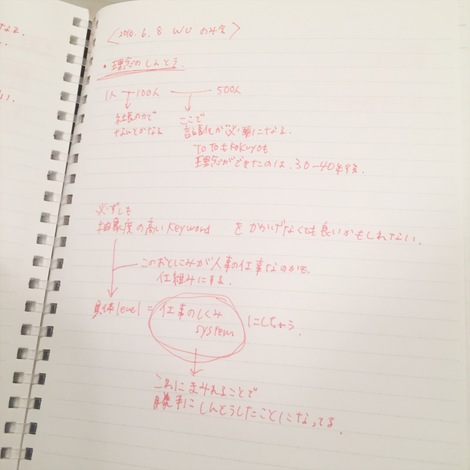 〈2010.6.8 WU のみ会〉
・理念のしんとう。
1人 → 100人 500人
社長の力で ここで
なんとかなる 言語化が必要になる。
TOTOもKokuyoも
理念ができたのは、30~40年する。
必ずしも
抽象度の高いKeyword をかかげなくても良いかもしれない。
このおとしこみが人事の仕事なのかも。
仕組みにする。
具体level = 仕事のしくみ にしちゃう。
system
これにまみれることで
勝手にしんとうしたことになってる。